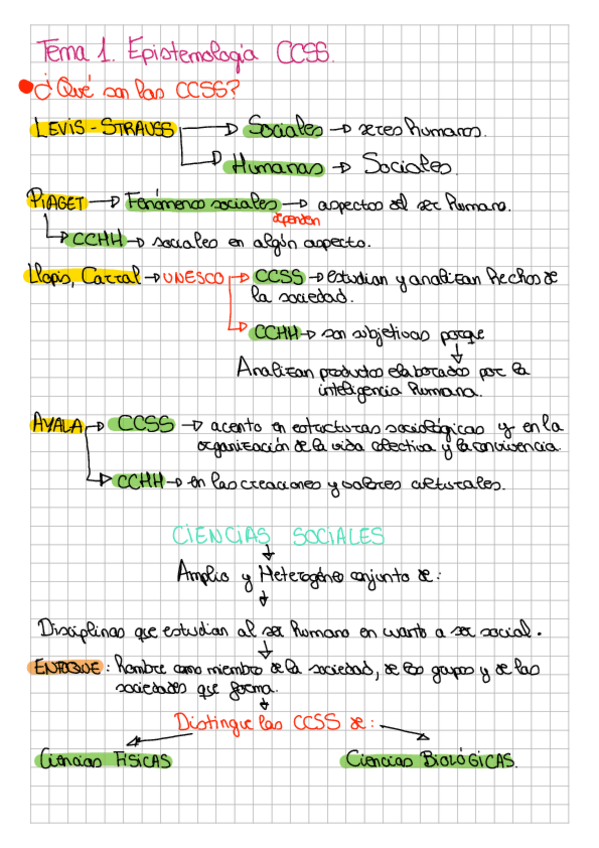 Tema 1. Epistemología CCSS.
¿Qué son las CCSS?
LEVIS-STRAUSS → Sociales → seres humanos.
→ Humanas → Sociales.
PIAGET → Fenómenos sociales → aspectos del ser humano.
dependen
→ CCHH → sociales en algún aspecto.
Llopis, Carral → UNESCO → CCSS → estudian y analizan hechos de
la sociedad.
→ CCHH → son subjetivas porque
↓
Analizan productos elaborados por la
inteligencia humana.
AYALA → CCSS → acento en estructuras sociológicas y en la
organización de la vida colectiva y la convivencia.
→ CCHH → en las creaciones y valores culturales.
CIENCIAS SOCIALES
↓
Amplio y Heterogéneo conjunto de:
↓
Disciplinas que estudian al ser humano en cuanto a ser social.
↓
ENFOQUE: hombre como miembro de la sociedad, de los grupos y de las
sociedades que forma.
↓
Distingue las CCSS de:
Ciencias FÍSICAS Ciencias BIOLÓGICAS.